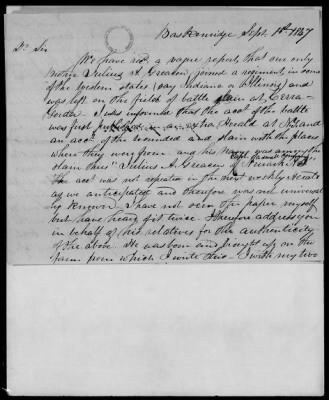 Baskenridge Sept. 1st 1847
Dr Sir
We have recd a vague report, that our only
brother Julius A. Greacen joined a regiment, in some
of the western states (say Indiana or Illinois) and
was left on the field of battle slain at Cerra-
Gordo. I was informed that the acct of the battle
was first published in an extra Herald at N. Island
an acct of the wounded and slain with the places
where they were from and his name was among the
slain thus "Julius A. Greacen of Newark"
The acct was not repeated in the next weekly Herald
as we anticipated and therefore was not universal
ly known. I have not seen the paper myself
but have heard of it twice. I therefore address you
in behalf of his relatives for the authenticity
of the above. He was born and brought up on the
farm from which I write this. I with my two